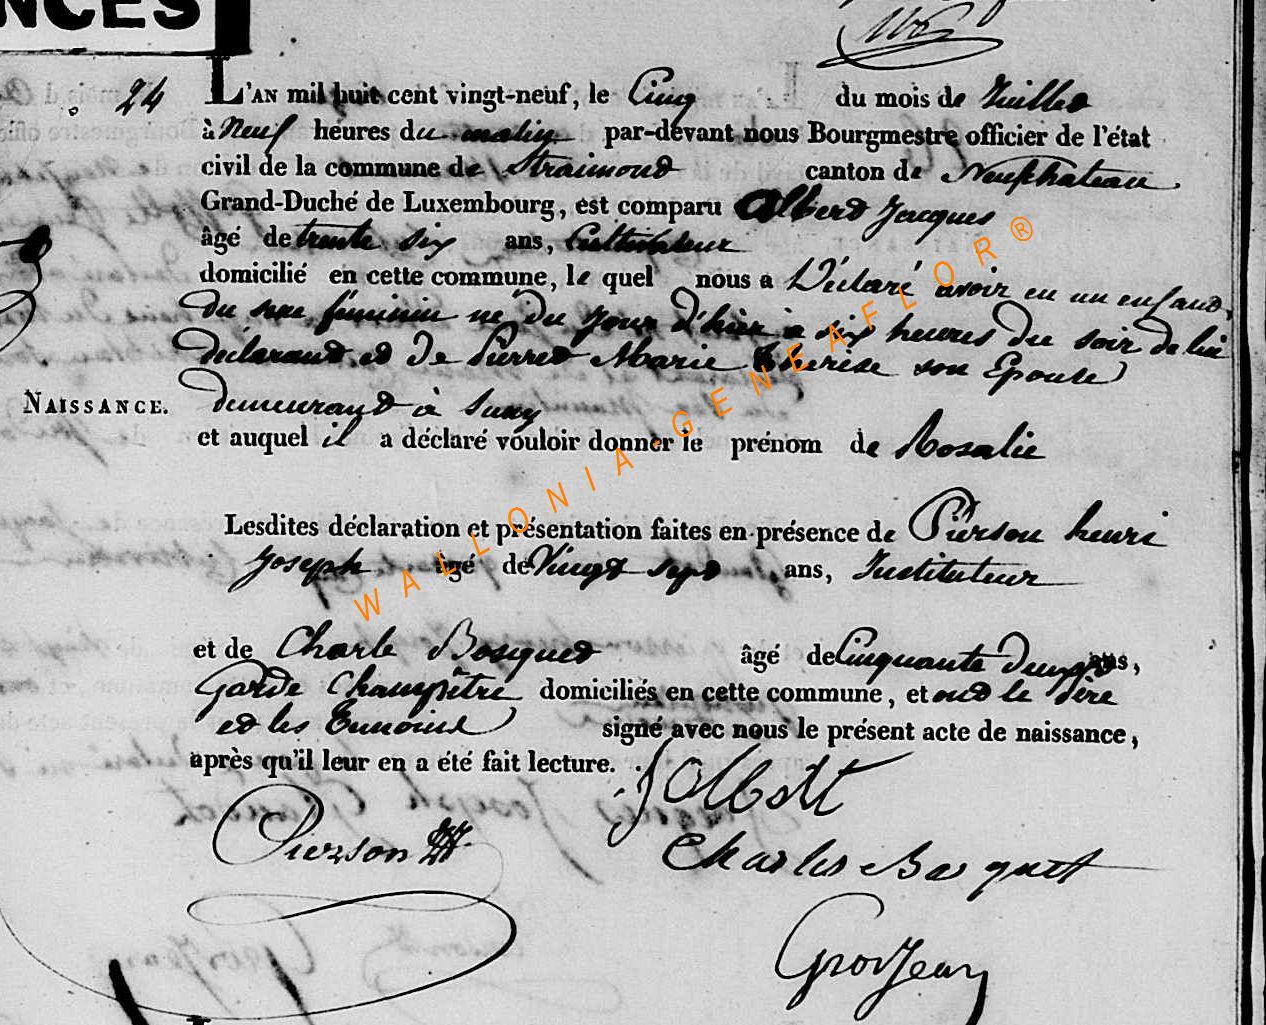 NCES
24
L'AN mil huit cent vingt-neuf, le Cinq du mois de Juillet
à Neuf heures du matin par-devant nous Bourgmestre officier de l'état
civil de la commune de Straimont canton de Neufchateau
Grand-Duché de Luxembourg, est comparu Albert Jacques
âgé de trente six ans, Cultivateur
domicilié en cette commune, le quel nous a Déclaré avoir eu un enfant
du sexe féminin né du jour d'hier à six heures du soir de lui
déclarant et De Pierret Marie Therese son Epouse
NAISSANCE.
demeurant à Suxy
et auquel il a déclaré vouloir donner le prénom de Rosalie
Lesdites déclaration et présentation faites en présence de Pierson henri
Joseph âgé de Vingt sept ans, Instituteur
et de Charle Bosquet âgé de Cinquante Deux ans,
Garde Champître domiciliés en cette commune, et ont le père
et les Temoins signé avec nous le présent acte de naissance,
après qu'il leur en a été fait lecture. J Albert
Pierson
Charles Bosquet
GrosJean
WALLONIA-GENEAFLOR®